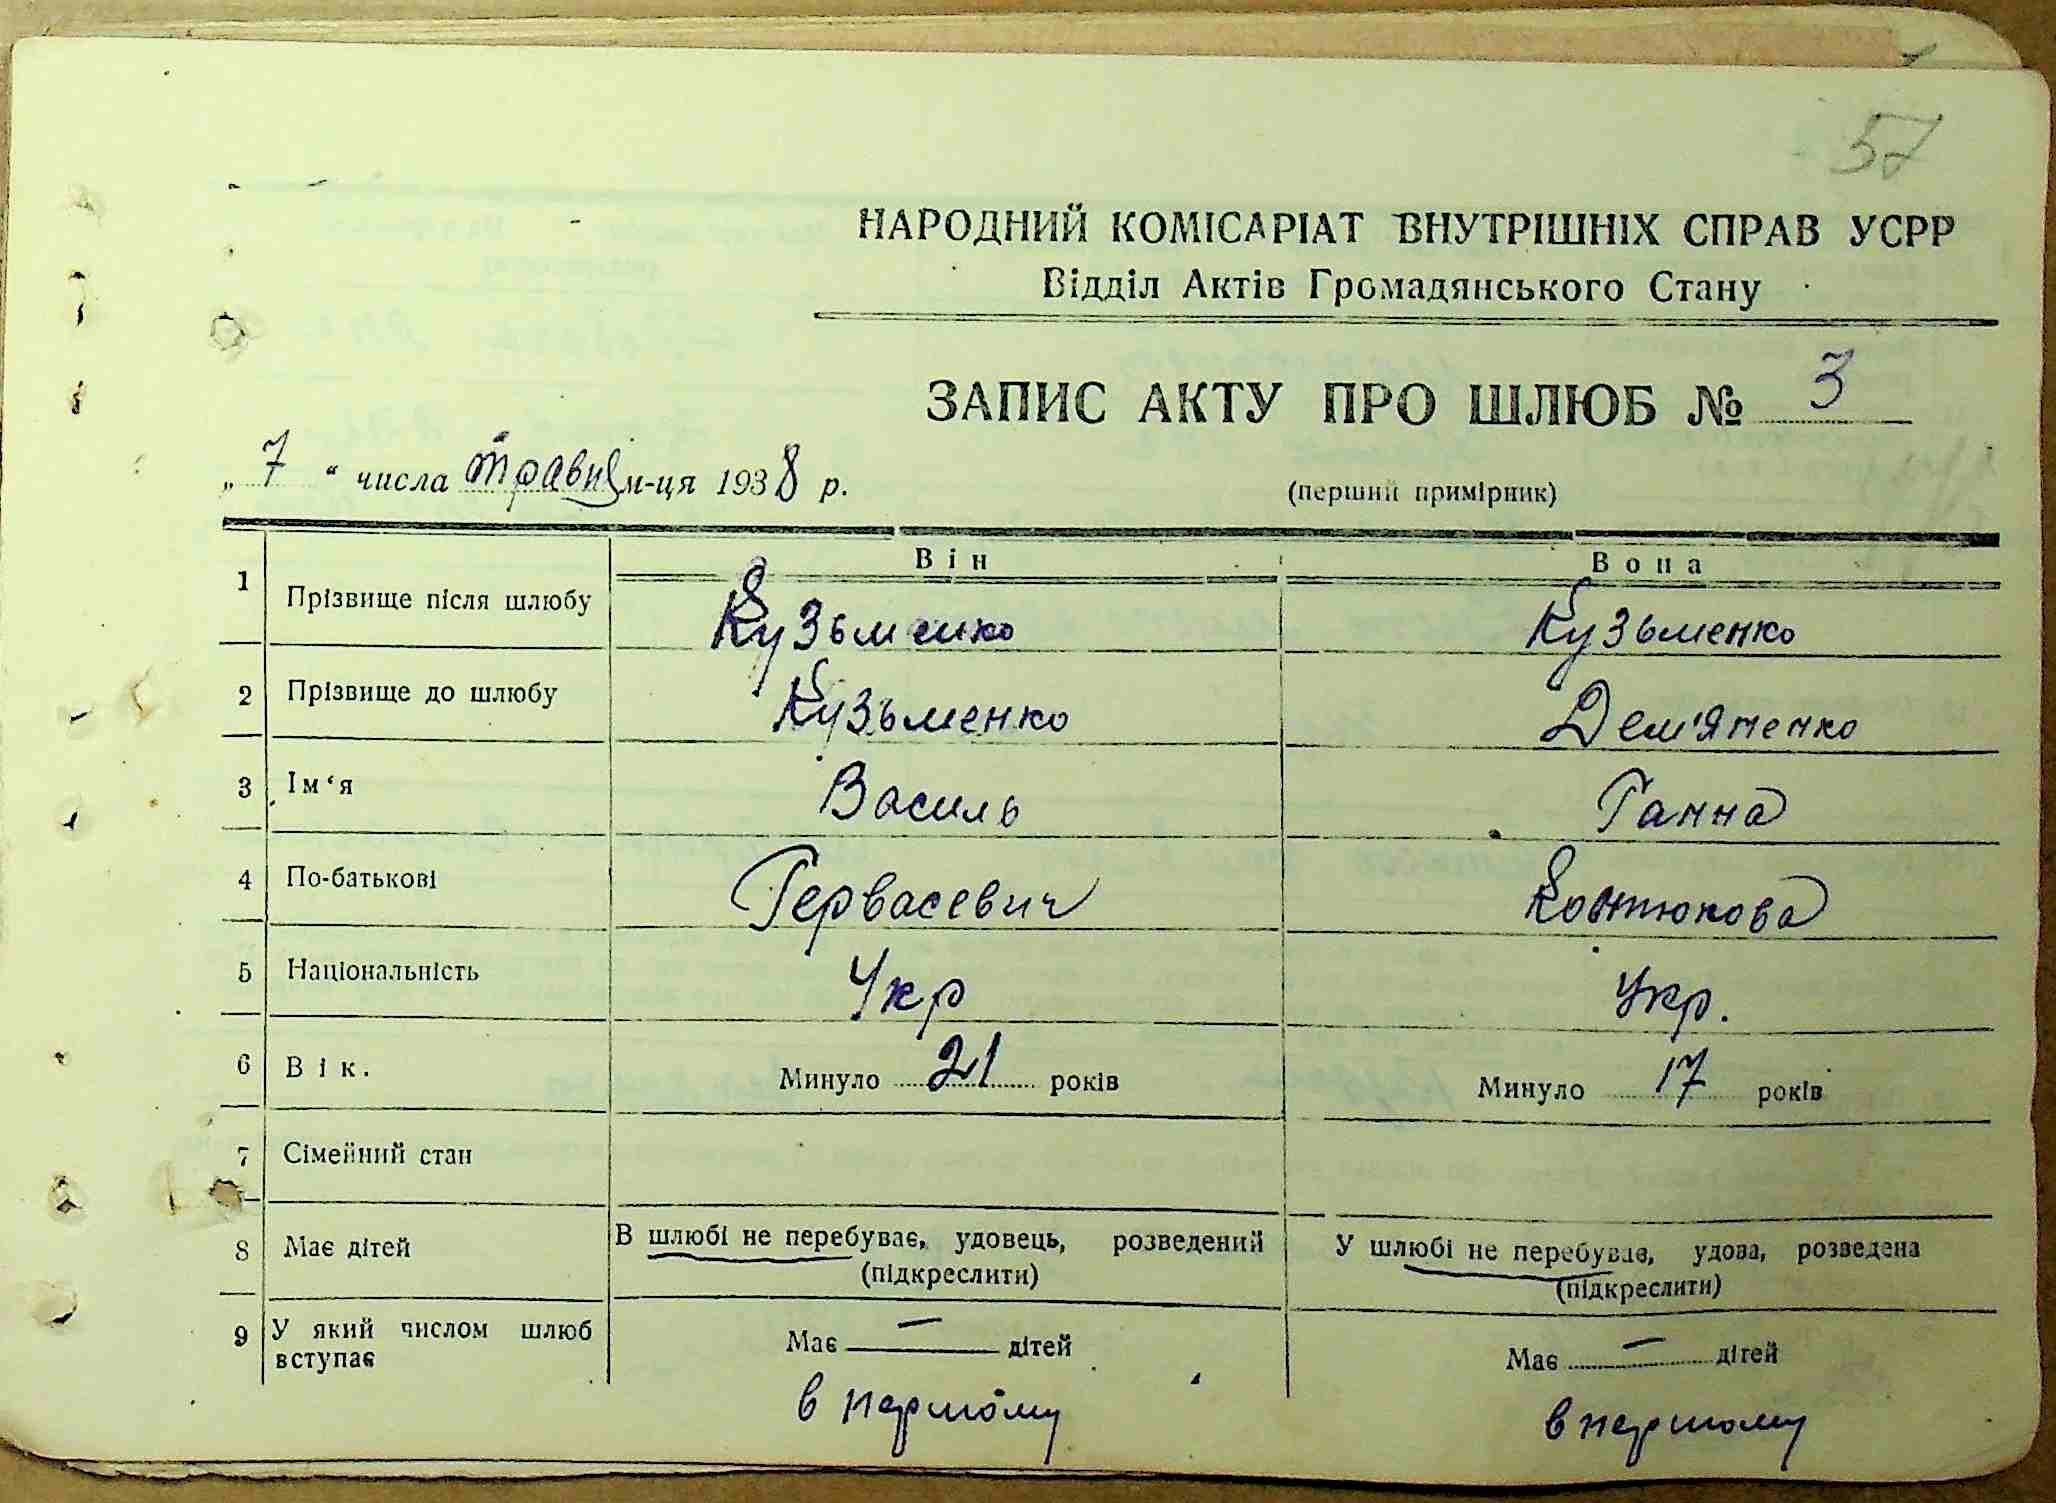 57
НАРОДНИЙ КОМІСАРІАТ ВНУТРІШНІХ СПРАВ УСРР
Відділ Актів Громадянського Стану
ЗАПИС АКТУ ПРО ШЛЮБ № 3
„ 7 “ числа травня м-ця 1938 р.
(перший примірник)
Він Вона
1 Прізвище після шлюбу Кузьменко Кузьменко
2 Прізвище до шлюбу Кузьменко Дем'яненко
3 Ім‘я Василь Ганна
4 По-батькові Гервасевич
5 Національність Укр Укр.
6 Вік. Минуло 21 років Минуло 17 років
7 Сімейний стан
8 Має дітей В шлюбі не перебуває, удовець, розведений У шлюбі не перебуває, удова, розведена
(підкреслити) (підкреслити)
9 У який числом шлюб вступає Має — дітей Має — дітей
в першому в першому